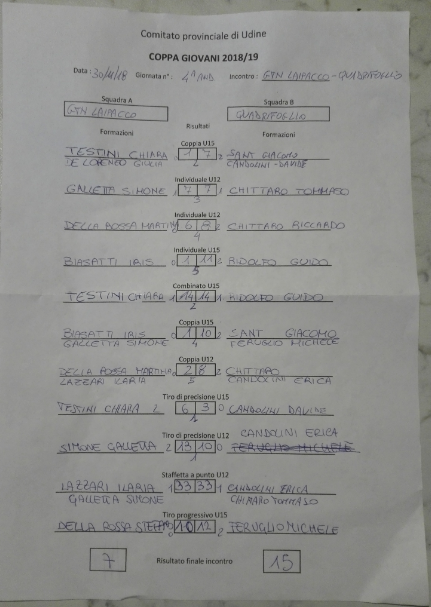 Comitato provinciale di Udine
COPPA GIOVANI 2018/19
Data: 30/11/18 Giornata n°: 4ª AND Incontro: GTN LAIPACCO - QUADRIFOGLIO
Squadra A Squadra B
GTN LAIPACCO QUADRIFOGLIO
Formazioni Risultati Formazioni
Coppia U15
TESTINI CHIARA 1 7 2 SANT GIACOMO
DE LORENZO GIULIA 2 CANDOLINI - DAVIDE
Individuale U12
GALLETTA SIMONE 1 7 7 1 CHITTARO TOMMASO
3
Individuale U12
DELLA ROSSA MARTINA 6 8 2 CHITTARO RICCARDO
4
Individuale U15
BIASATTI IRIS 0 1 11 2 RIDOLFO GUIDO
5
Combinato U15
TESTINI CHIARA 1 14 14 1 RIDOLFO GUIDO
2
Coppia U15
BIASATTI IRIS 0 1 10 2 SANT GIACOMO
GALLETTA SIMONE 4 FERUGLIO MICHELE
Coppia U12
DELLA ROSSA MARTINA 0 2 8 2 CHITTARO
LAZZARI ILARIA 5 CANDOLINI ERICA
Tiro di precisione U15
TESTINI CHIARA 2 6 3 0 CANDOLINI DAVIDE
Tiro di precisione U12 CANDOLINI ERICA
SIMONE GALLETTA 2 13 10 0 FERUGLIO MICHELE
1
Staffetta a punto U12
LAZZARI ILARIA 1 33 33 1 CANDOLINI ERICA
GALLETTA SIMONE CHITTARO TOMMASO
Tiro progressivo U15
DELLA ROSSA 0 10 12 2 FERUGLIO MICHELE
7 Risultato finale incontro 15